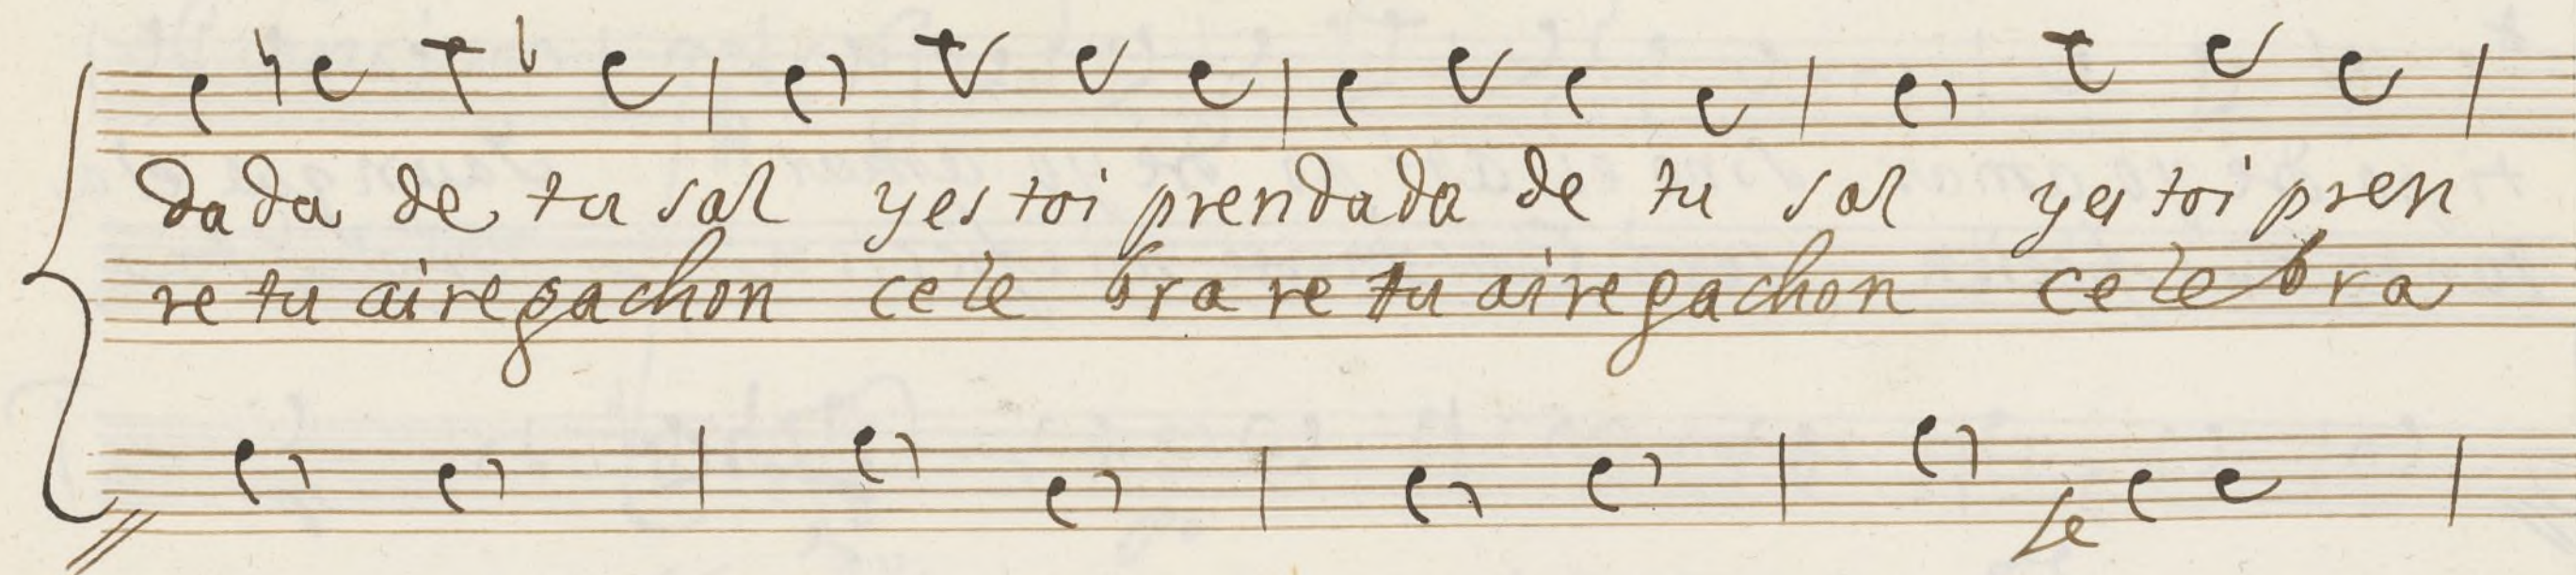 dada de tu sal yestoi prendada de tu sal yestoi pren
re tu aire gachon cele brare tu aire gachon celebra